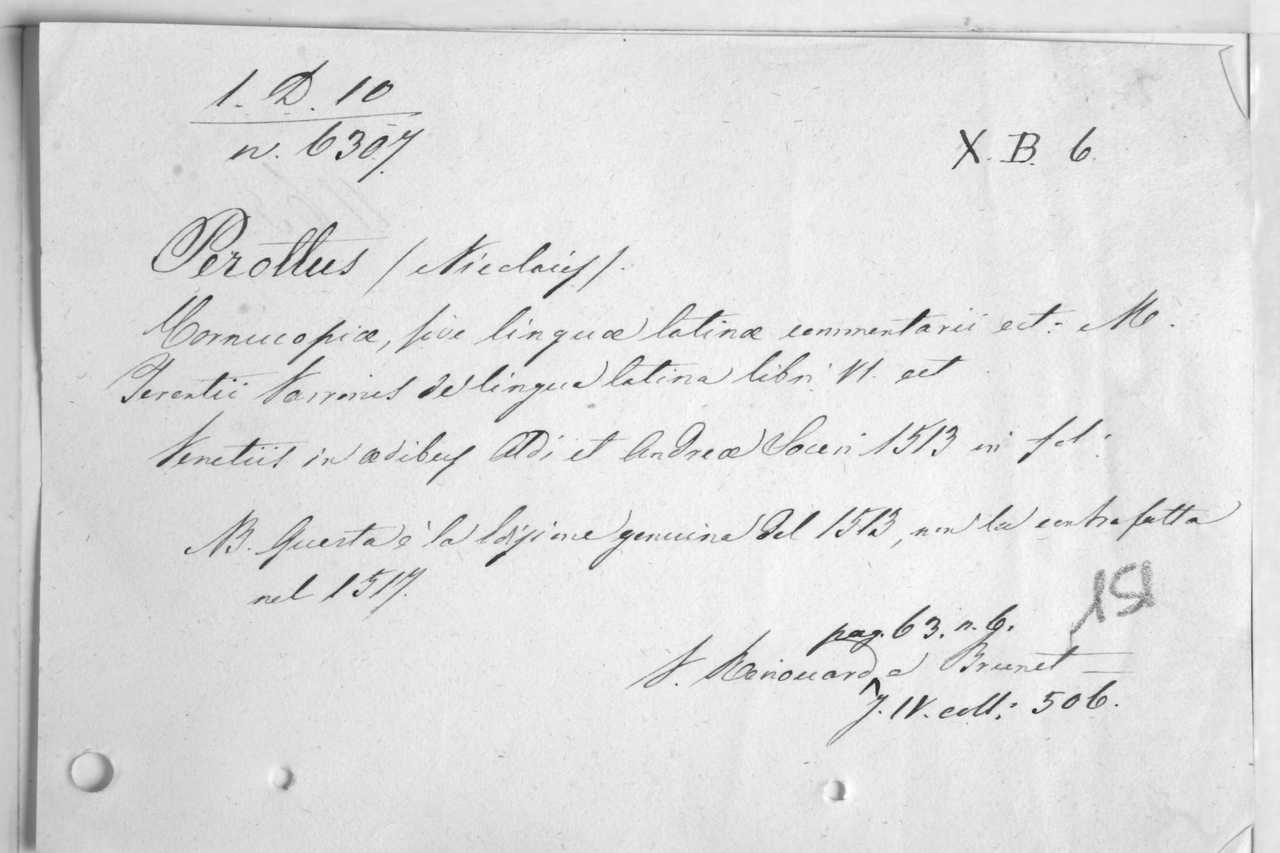 1. D. 10
n. 6307
X. B. 6
Perottus (Nicolaus).
Cornucopiæ, sive linguæ latinæ commentarii ect: M.
Terentii Varronis de lingua latina libri VI. ect
Venetiis in ædibus Aldi et Andreæ Soceri 1513 in fol:
NB. Questa è la Edizione genuina del 1513, non la contrafatta
nel 1517.
151
pag. 63. n. 6.
V. Renouard e Brunet
T. IV. coll: 506.